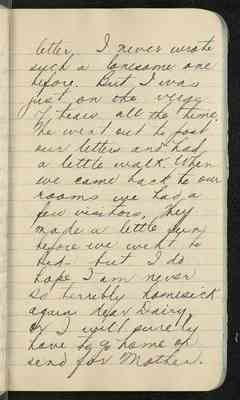 letter. I never wrote
such a lonesome one
before. But I was
just on the verge
of tears all the time.
We went out to post
our letters and had
a little walk. When
we came back to our
rooms we had a
few visitors. They
made a little fun
before we went to
bed. But I do
hope I am never
so terribly homesick
again dear Dairy,
or I will surely
have to go home or
send for Mother.